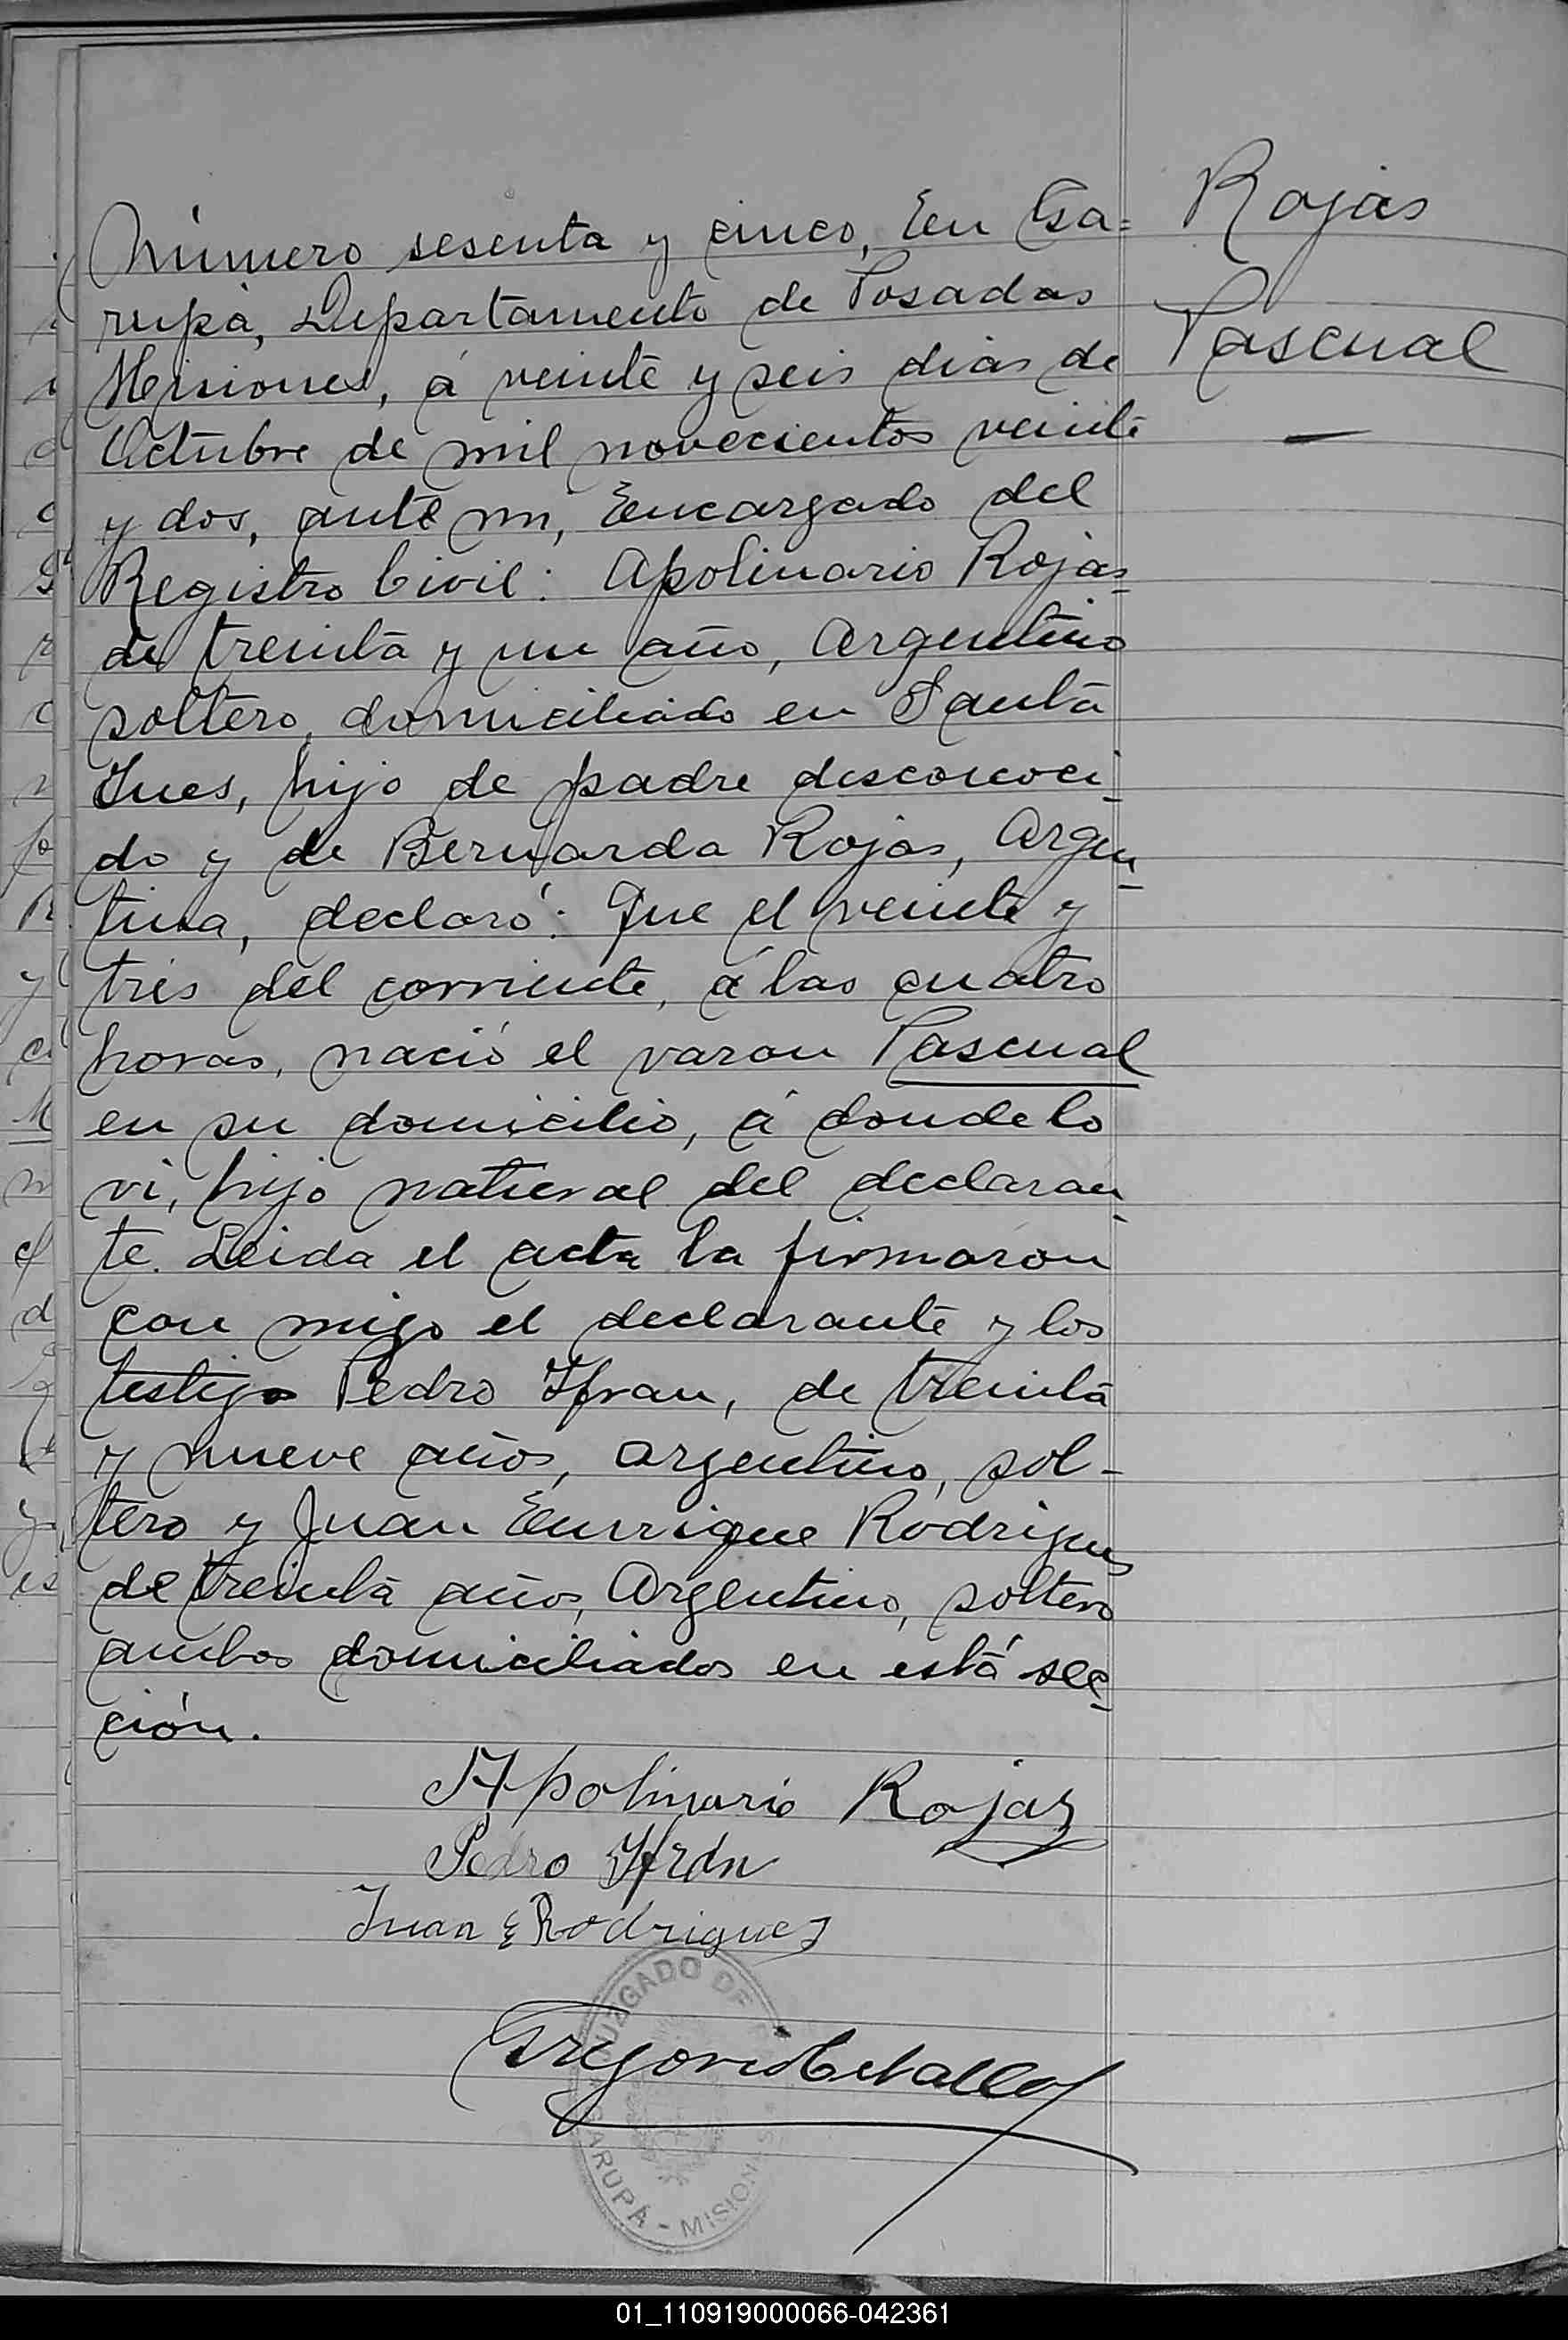 Rojas
Pascual
Número sesenta y cinco, En Ga=
rupá, Departamento de Posadas
Misiones, á veinte y seis dias de
Octubre de mil novecientos veinte
y dos, ante mi, Encargado del
Registro Civil: Apolinario Rojas
de treinta y un año, Argentino
soltero, domiciliado en Santa
Ines, hijo de padre desconoci-
do y de Bernarda Rojas, Argen-
tina, declaró: Que el veinte y
tres del corriente, á las cuatro
horas, nació el varon Pascual
en su domicilio, á donde lo
vi, hijo natural del declaran-
te. Leida el acta la firmaron
con migo el declarante y los
testigos Pedro Ifran, de treinta
y nueve años, argentino, sol-
tero y Juan Enrrique Rodrigues
de treinta años, Argentino, soltero
ambos domiciliados en está sec-
ción.
Apolinario Rojas
Pedro Ifran
Juan E Rodriguez
JUZGADO DE
Gregorio
GARUPÁ - MISIONES
01_110919000066-042361